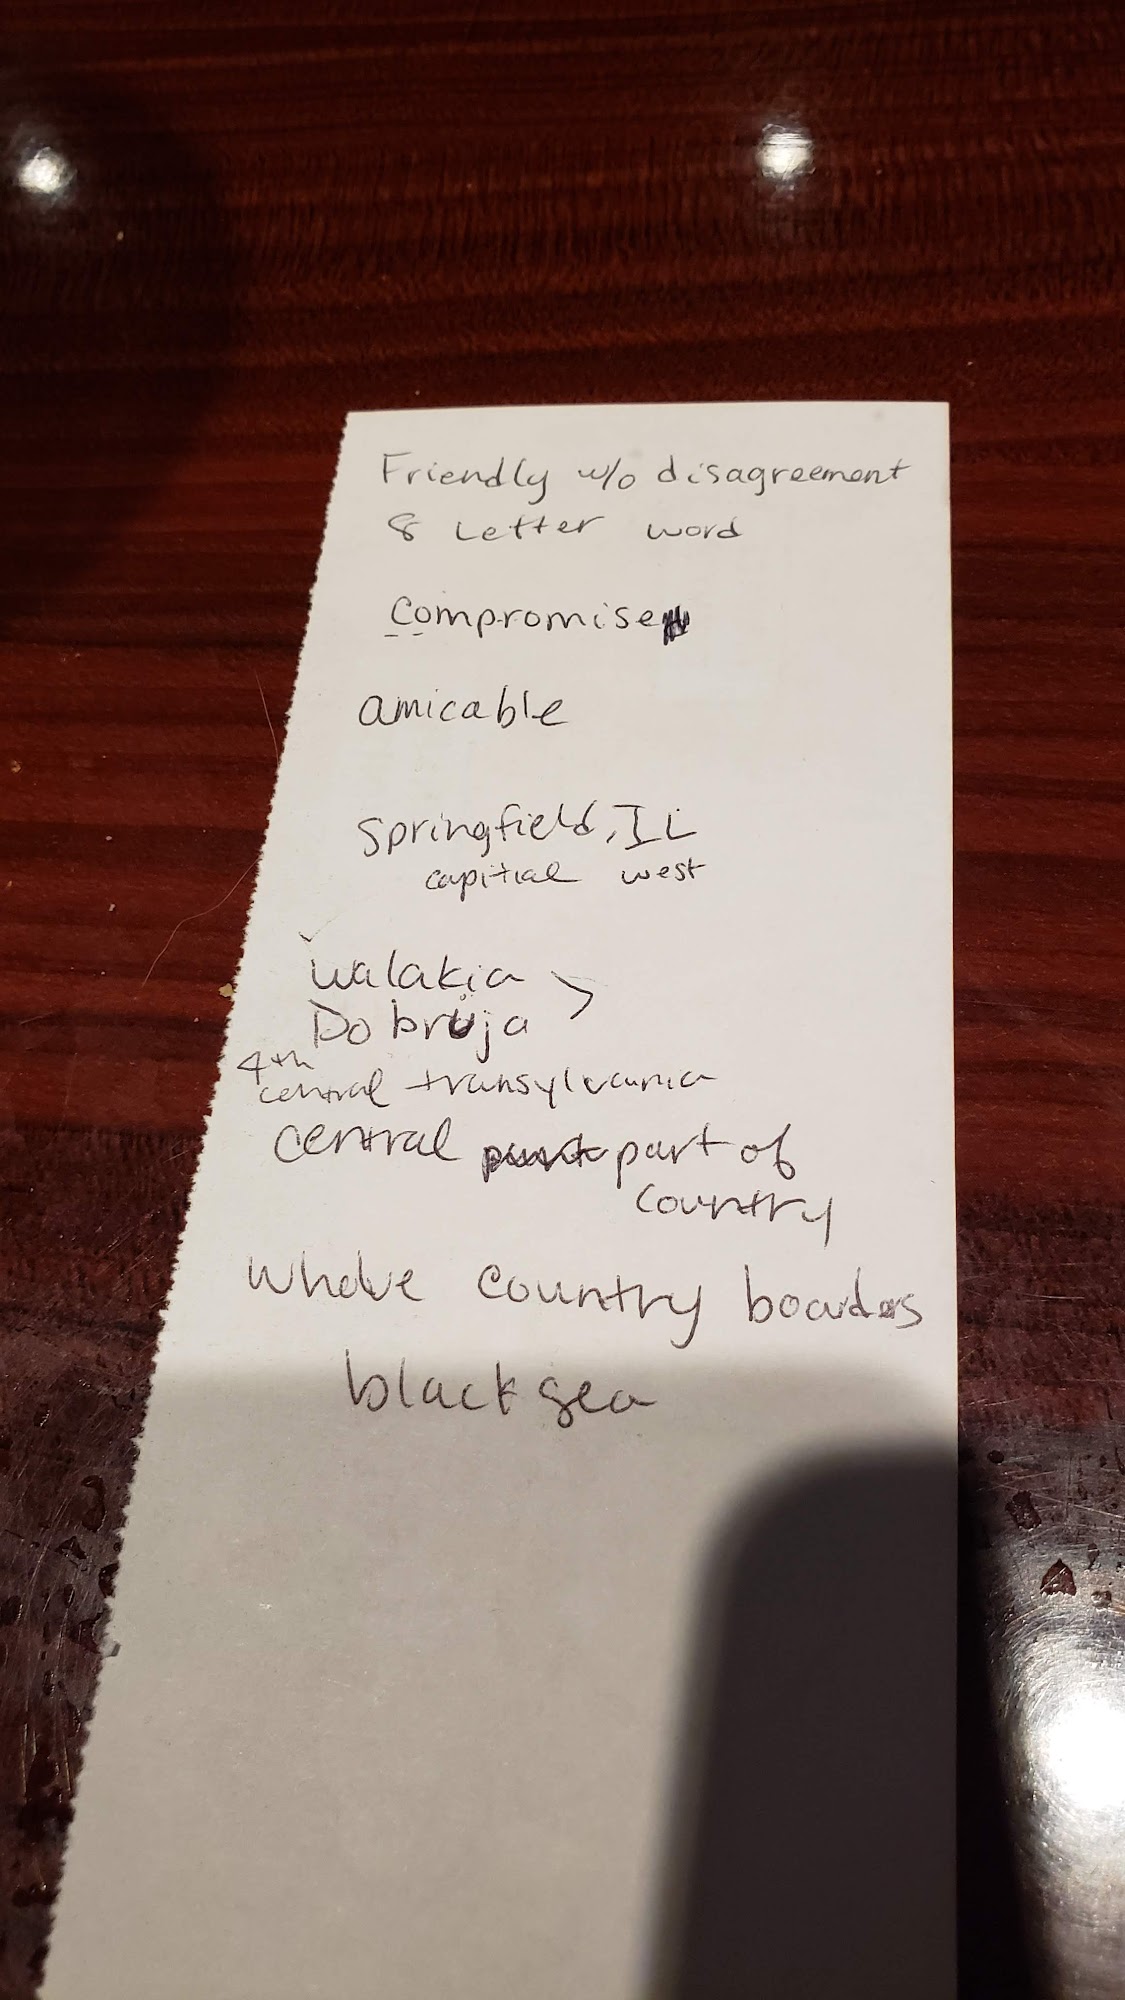 Friendly w/o disagreement
8 Letter word
compromise
amicable
Springfield, IL
capitial west
walakia
Dobruja
4th
central transylvania
central part of
country
Whole country boarders
black sea